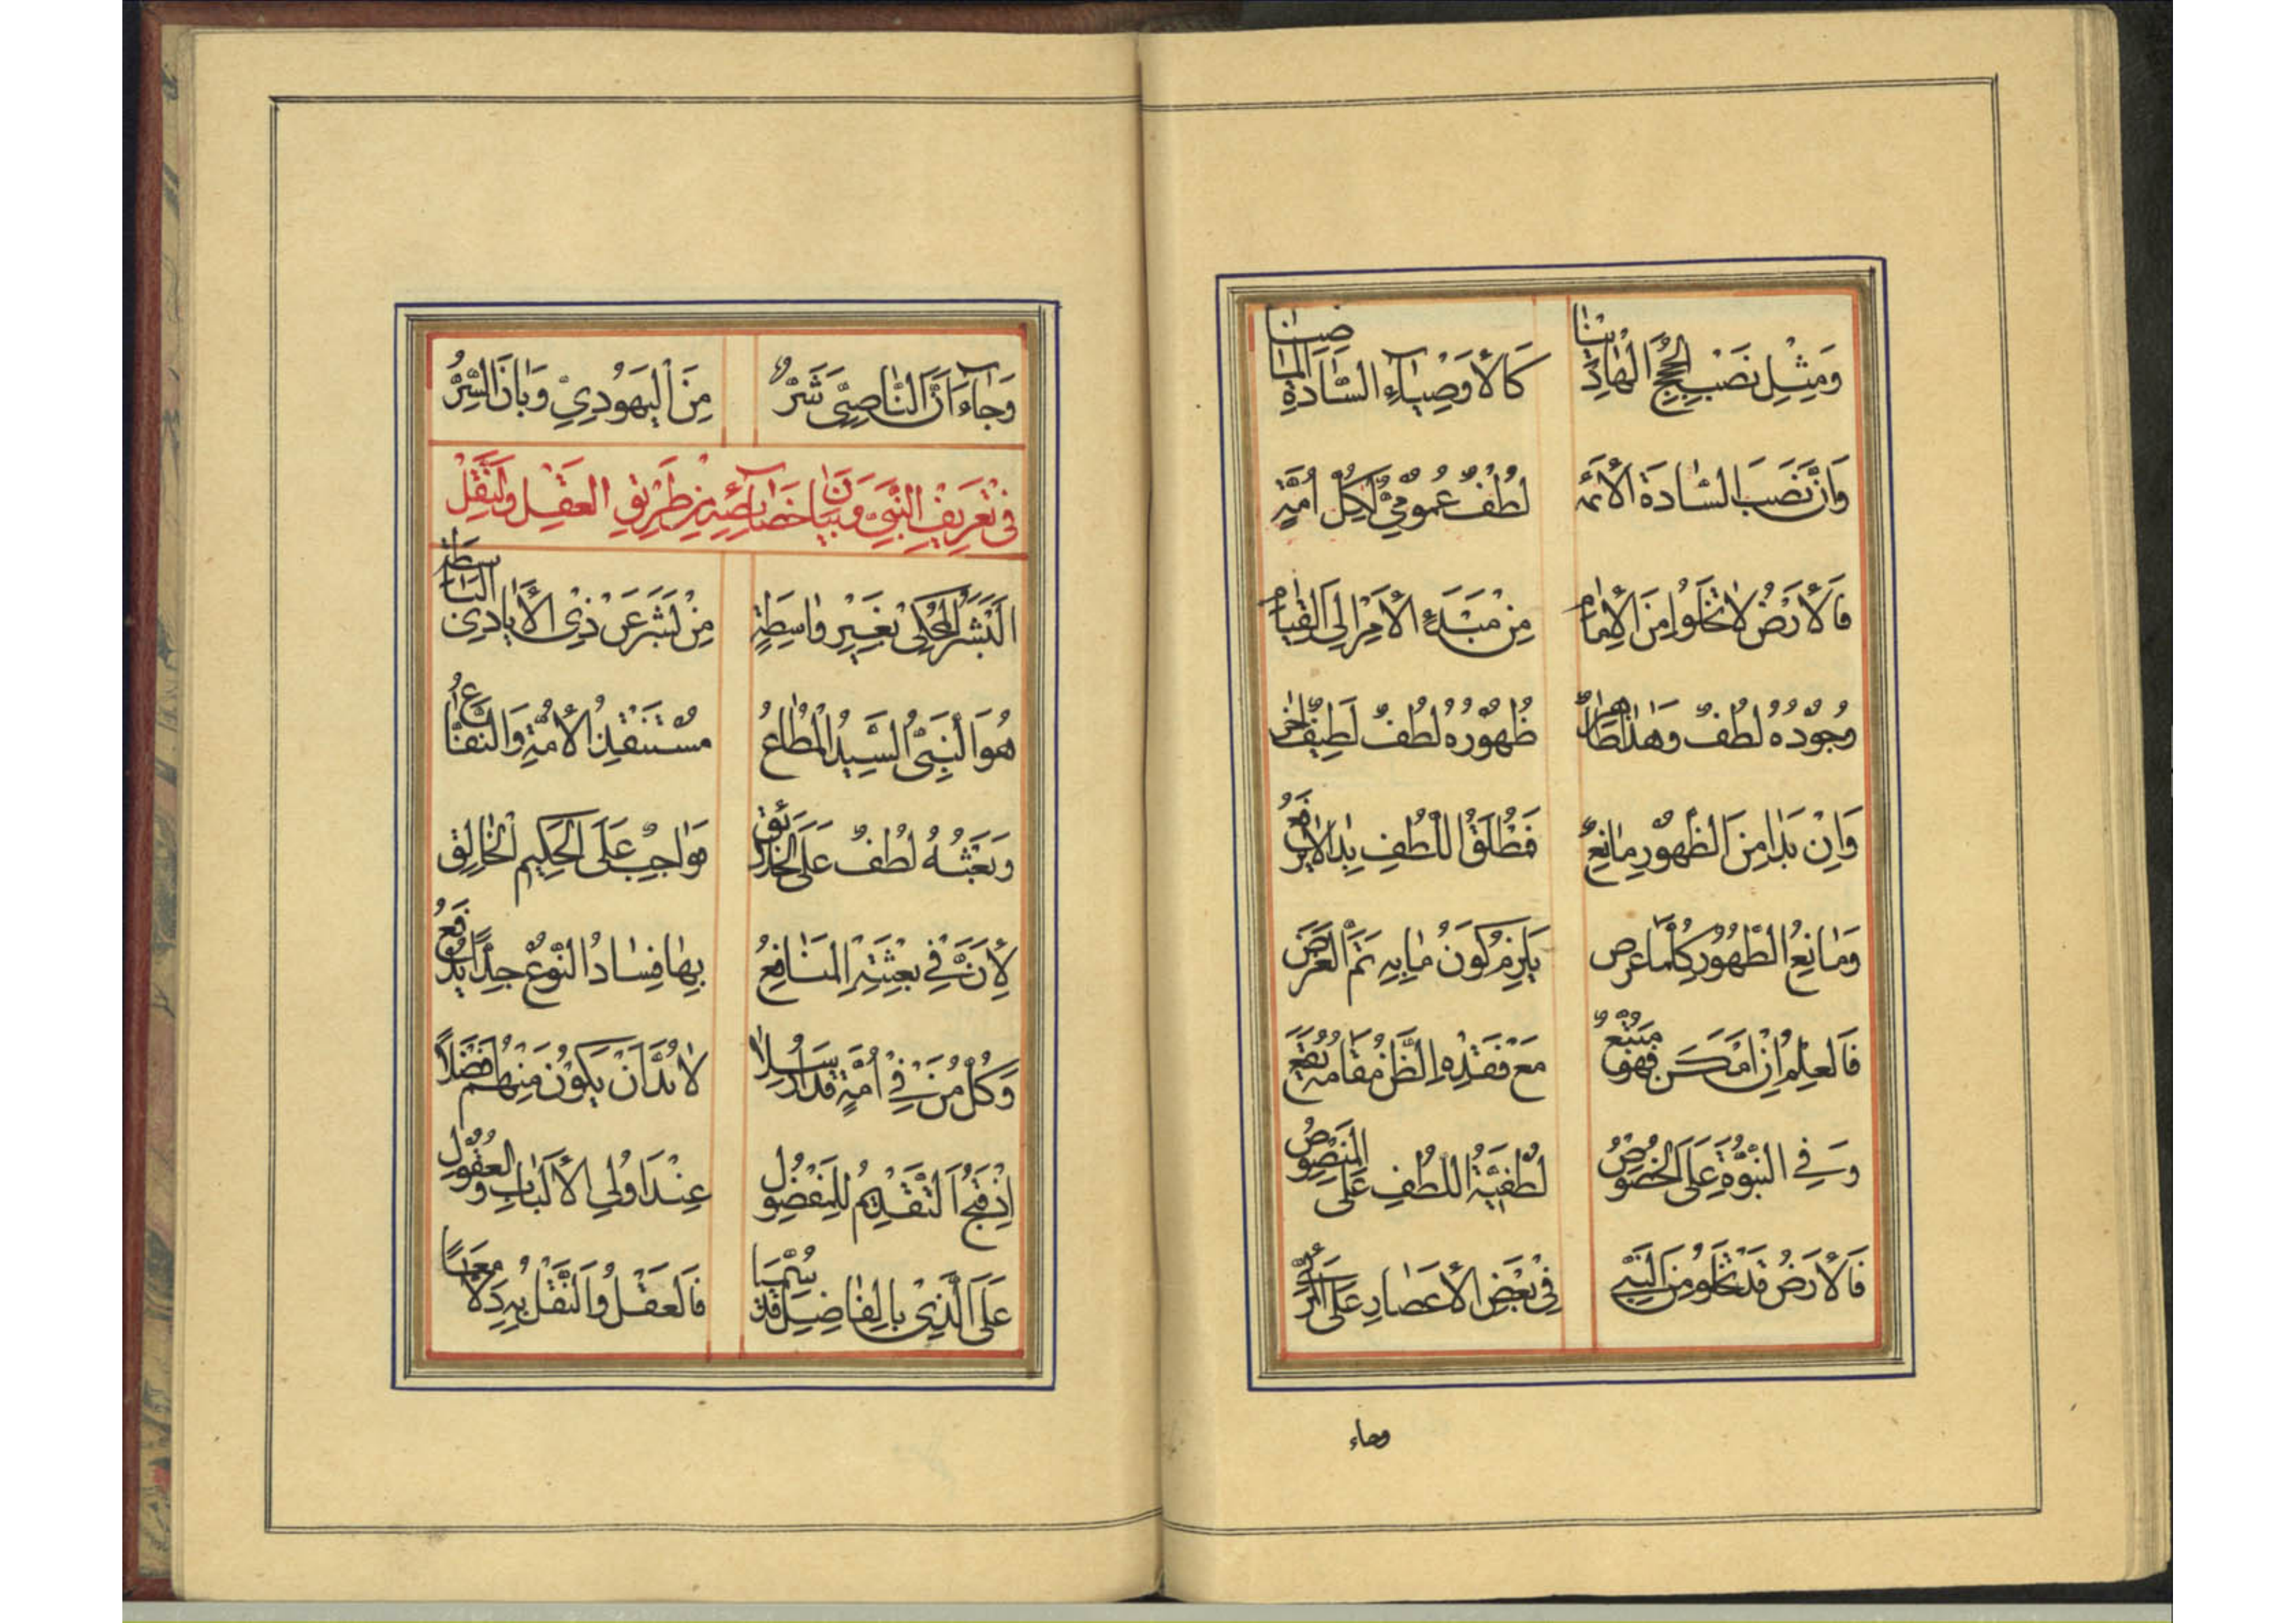 وَمِثْلِ نَصْبِ الْحُجَجِ الْهَادِيْنَا كَالْأَوْصِيَاءِ السَّادَةِ الْمَاضِيْنَا
وَاَنَّ نَصَبَ السَّادَةَ الْأَئِمَّه لُطْفٌ عُمُومِيٌّ لِكُلِّ اُمَّةٍ
فَالْأَرَضُ لَا تَخْلُوا مِنَ الْإِمَامِ مِنْ مَبْدَءِ الْأَمْرِ اِلَى الْقِيَامِ
وُجُوْدُهُ لُطْفٌ وَهٰذَا ظَاهِرٌ ظُهُوْرُهُ لُطْفٌ لَطِيْفٌ اٰخَرٌ
وَاِنْ بَدَا مِنَ الظُّهُوْرِ مَانِعٌ فَمُطْلَقُ اللُّطْفِ بِذَا لَا يَرْفَعُ
وَمَانِعُ الظُّهُوْرِ كُلَّمَا عَرَض يَلْزِمُ كَوْنُ مَا بِهِ تَمَّ الْغَرَض
فَالْعِلْمُ اِنْ اَمْكَنَ فَهُوَ مُتَّبَعٌ مَعَ فَقْدِهِ الظَّنُّ مُقَامَهُ يَقَع
وَفِي النُّبُوَّةِ عَلَى الْخُصُوْصِ لُطْفِيَّةُ اللُّطْفِ عَلَى الْمَنْصُوْصِ
فَالْأَرَضُ قَدْ تَخْلُوْ مِنَ النَّبِيِّ فِيْ بَعْضِ الْأَعْصَارِ عَلَى
وجاء
وَجَاءَ اَنَّ النَّاصِبِيَّ شَرٌّ مِنَ الْيَهُوْدِيِّ وَبَانَ السِّرُّ
فِي تَعْرِيْفِ النَّبِيِّ وَبَيَانِ خَصَائِصِهِ مِنْ طَرِيْقِ الْعَقْلِ وَالنَّقْلِ
اَلْبَشَرُ الْمَحْكِيْ بِغَيْرِ وَاسِطَةٍ مِنْ بَشَرٍ عَنْ ذِي الْأَيَادِي الْبَاسِطَةِ
هُوَ النَّبِيُّ السَّيِّدُ الْمُطَاعُ مُسْتَنْقِذُ الْأُمَّةِ وَالنَّفَّاعُ
وَبَعْثُهُ لُطْفٌ عَلَى الْخَلَائِقِ وَوَاجِبٌ عَلَى الْحَكِيْمِ الْخَالِقِ
لِأَنَّ فِي بِعْثَتِهِ الْمَنَافِعُ بِهَا فَسَادُ النَّوْعِ جِدًّا يُدْفَعُ
وَكُلُّ مَنْ فِي اُمَّةٍ قَدْ اُرْسِلَا لَابُدَّ اَنْ يَكُوْنَ مِنْهُمْ اَفْضَلًا
اِذْ قُبِحَ التَّقْدِيْمُ لِلْمَفْضُوْلِ عِنْدَ اُولِي الْأَلْبَابِ وَالْعُقُوْلِ
عَلَى الَّذِيْ بِالْفَاضِلِ قَدْ سُمِّيَا فَالْعَقْلُ وَالنَّقْلُ بِهِ دَلَّا مَعًا